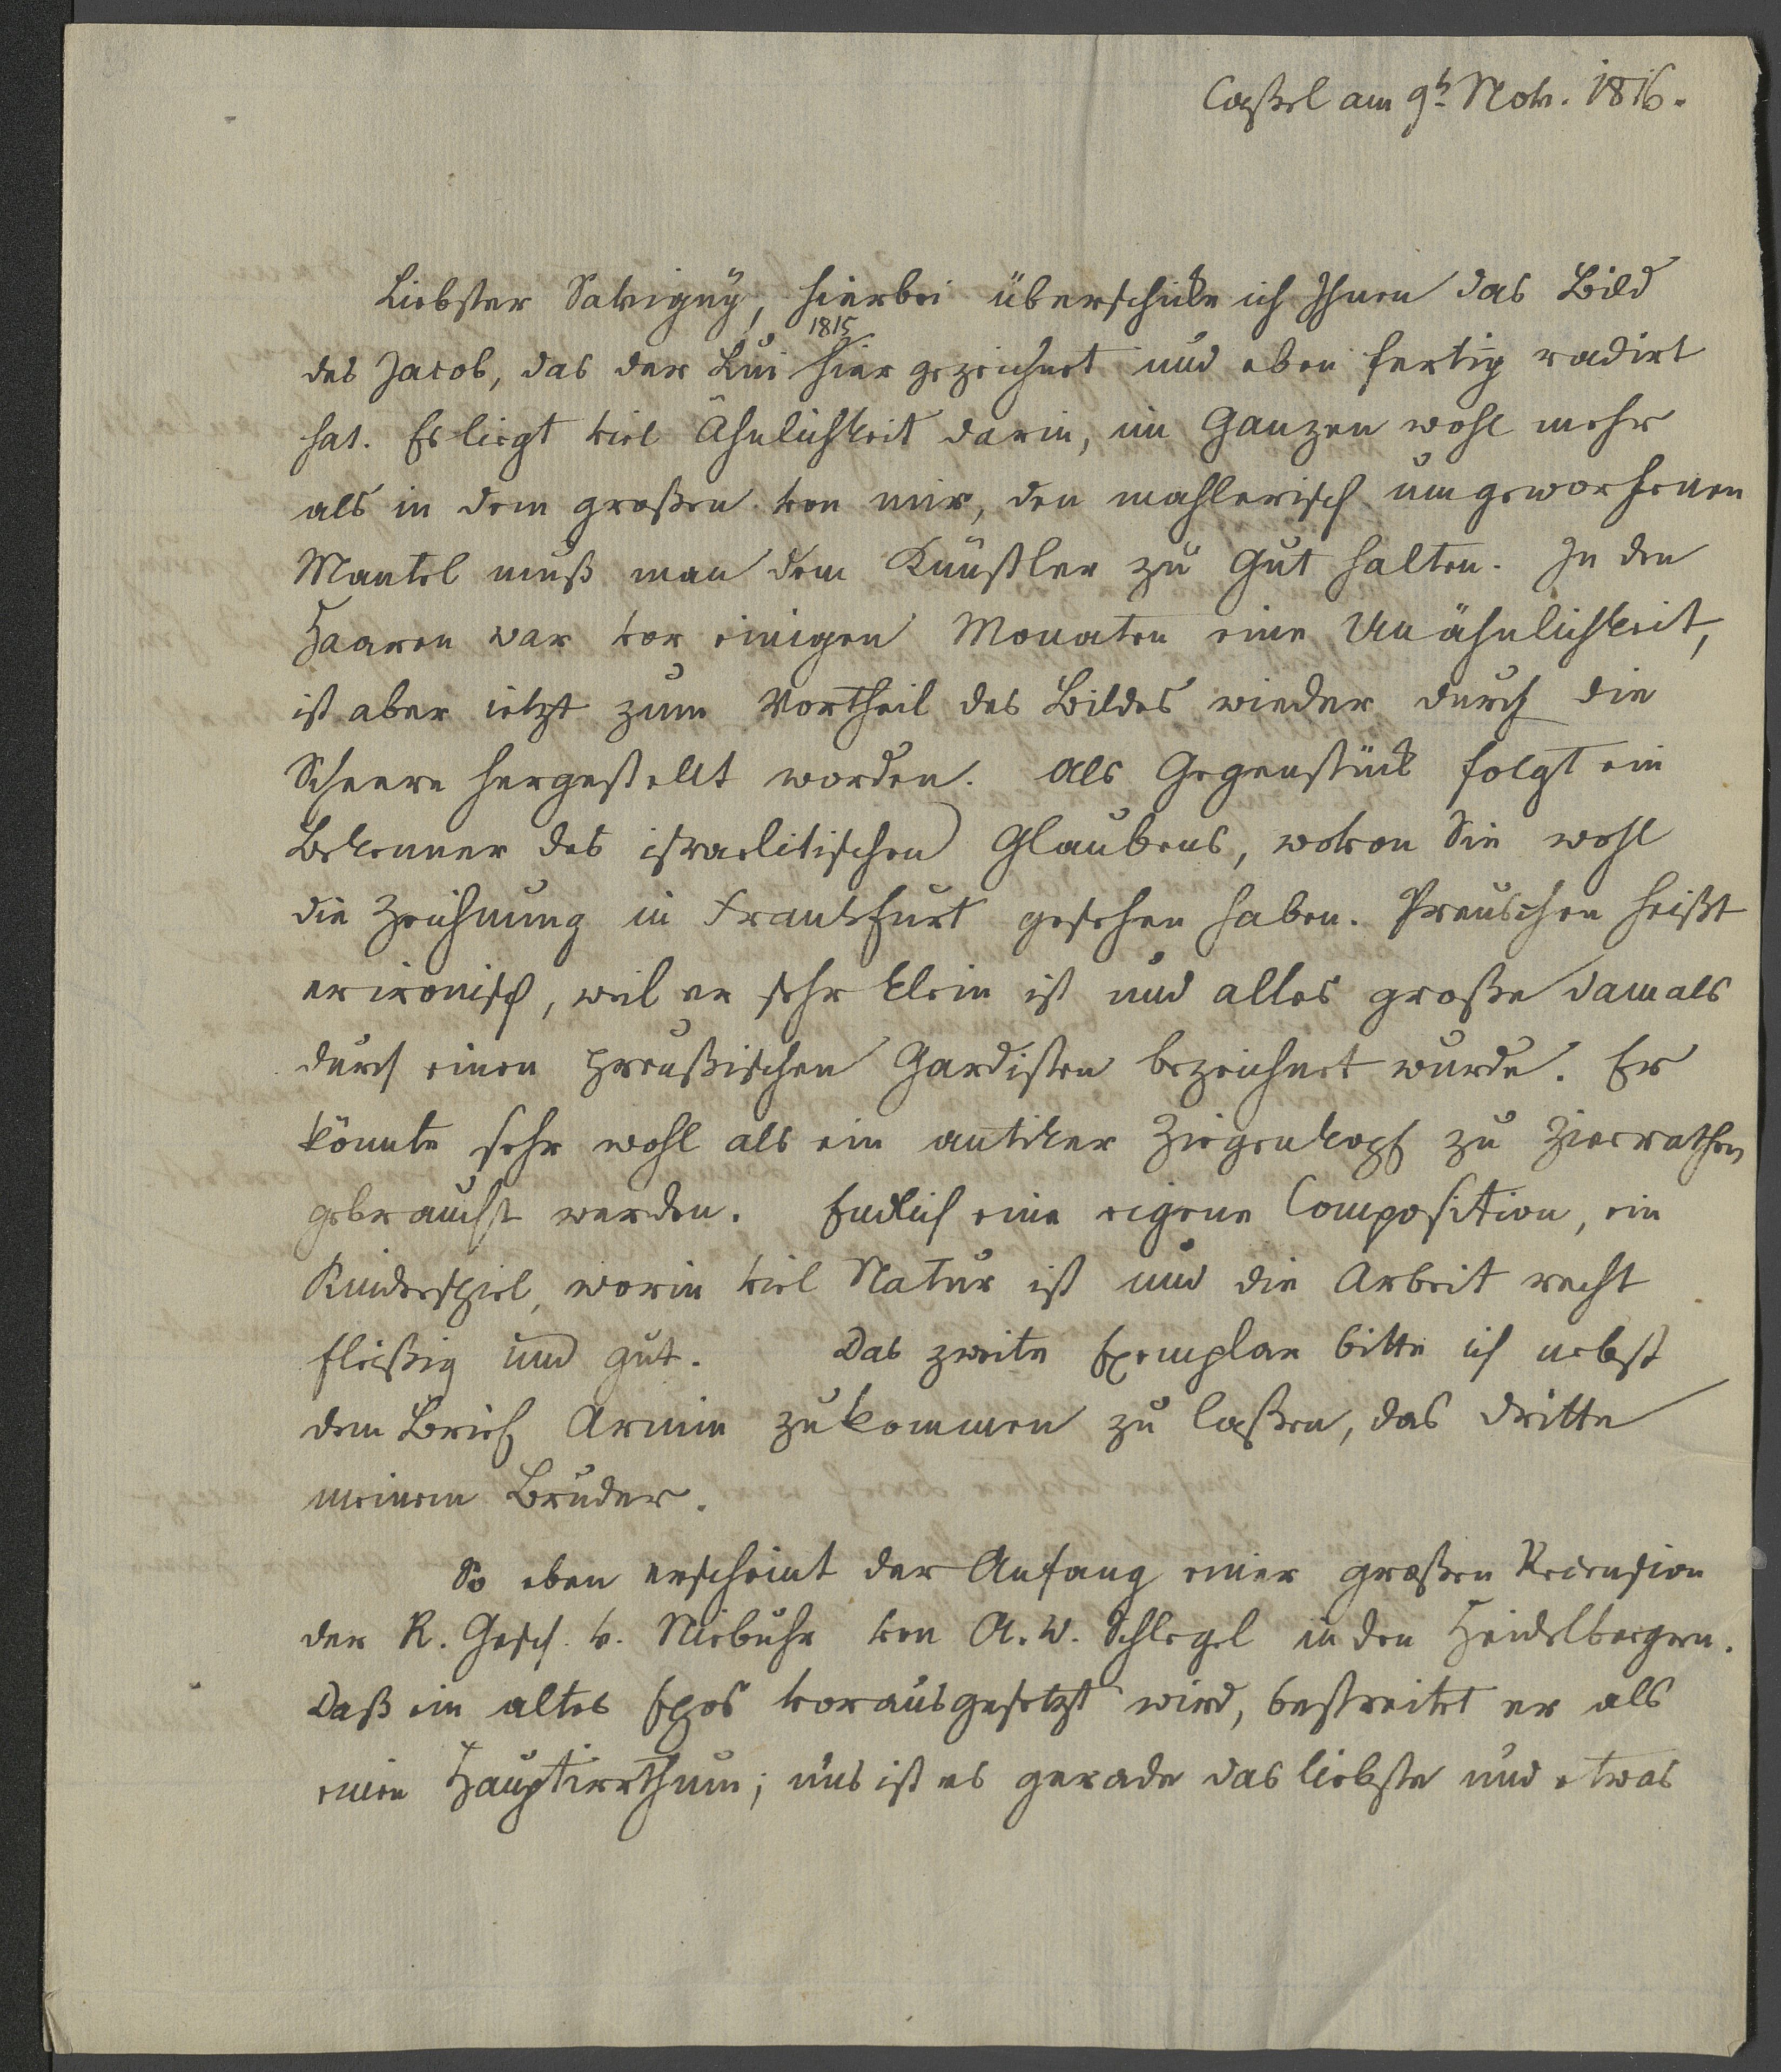 Caßel am 9t Nov. 1816.
Liebster Savigny, hierbei überschicke ich Ihnen das Bild
1815
des Jacob, das der Lui hier gezeichnet und eben fertig radirt
hat. Es liegt viel Ähnlichkeit darin, im Ganzen wohl mehr
als in dem großen von mir, den mahlerisch umgeworfenen
Mantel muß man dem Künstler zu Gut halten. In den
Haaren war vor einigen Monaten eine Unähnlichkeit,
ist aber jetzt zum Vortheil des Bildes wieder durch die
Scheere hergestellt worden. Als Gegenstück folgt ein
Bekenner des israelitischen Glaubens, wovon Sie wohl
die Zeichnung in Frankfurt gesehen haben. Preuschen heißt
er ironisch, weil er sehr klein ist und alles große damals
durch einen preußischen Gardisten bezeichnet wurde. Er
könnte sehr wohl als ein antiker Ziegenkopf zu Zierrathen
gebraucht werden. Endlich eine eigene Composition, ein
Kinderspiel, worin viel Natur ist und die Arbeit recht
fleißig und gut. Das zweite Exemplar bitte ich nebst
dem Brief Arnim zukommen zu laßen, das dritte
meinem Bruder.
So eben erscheint der Anfang einer großen Recension
der R. Gesch. v. Niebuhr von A. W. Schlegel in den Heidelbergern.
Daß ein altes Epos vorausgesetzt wird, bestreitet er als
einen Hauptirrthum; uns ist es gerade das liebste und etwas